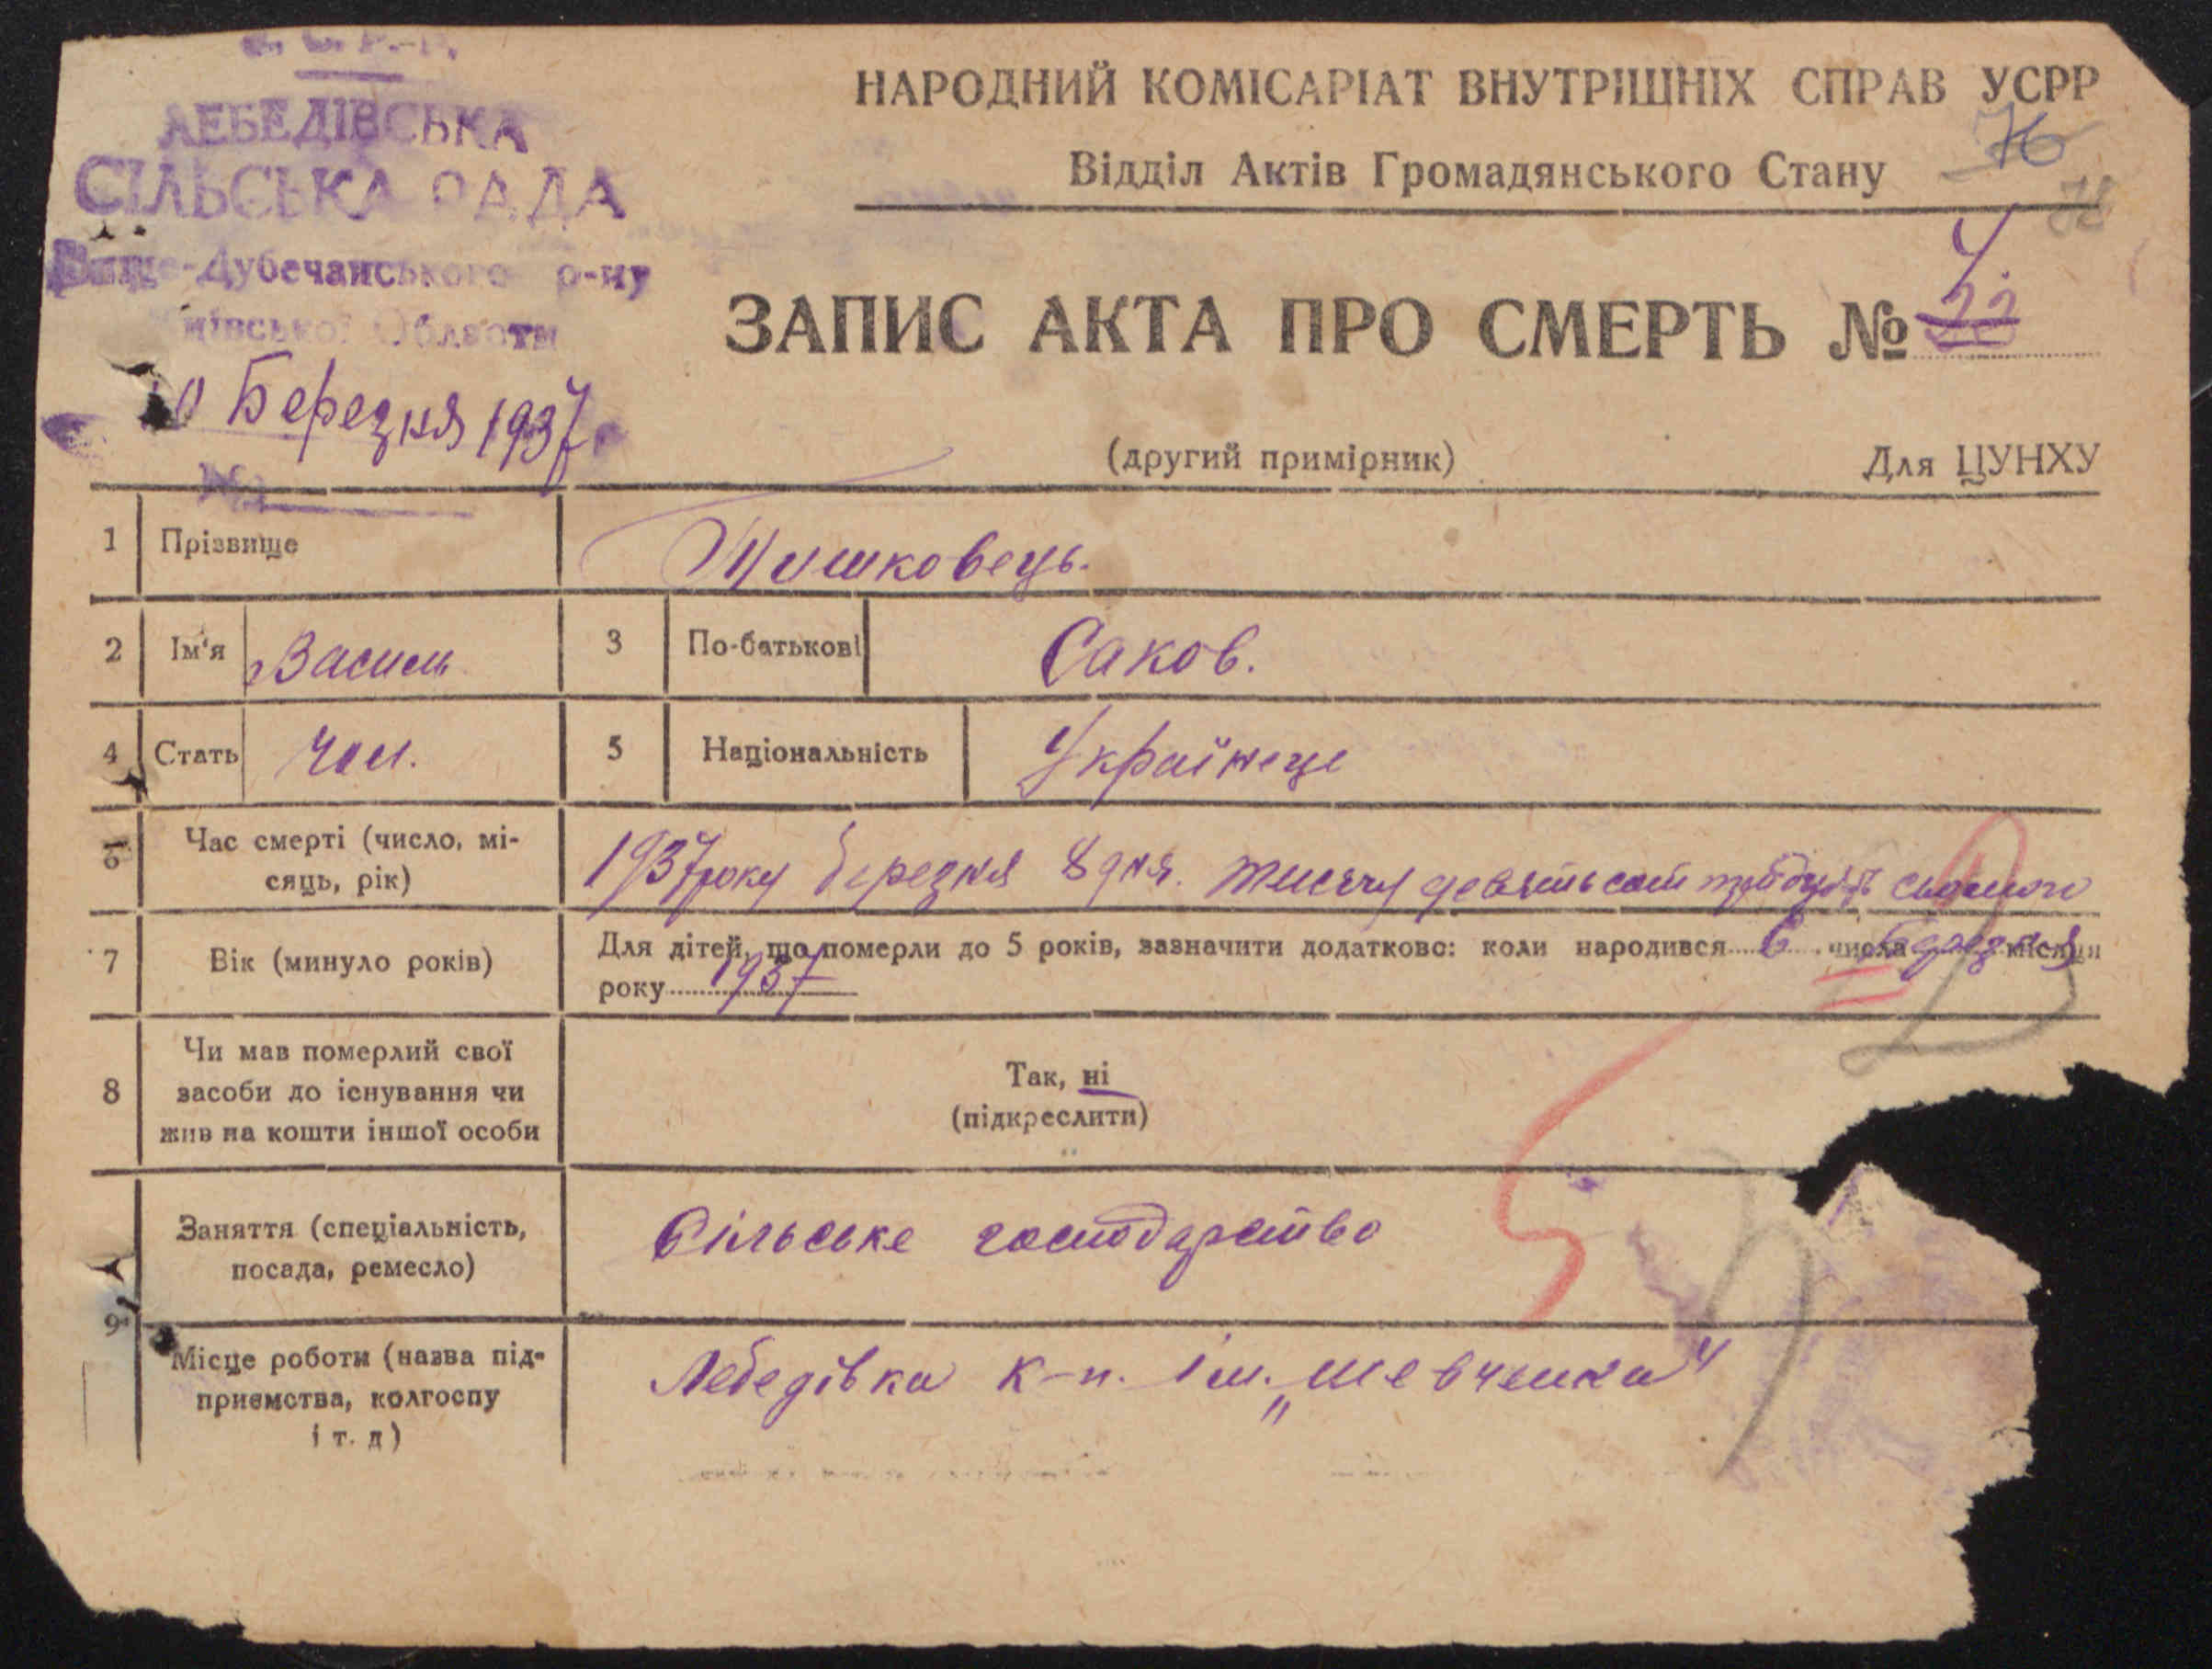 ЛЕБЕДІВСЬКА
СІЛЬСЬКА РАДА
Вище-Дубечанського р-ну
Київської Области
10 Березня 1937
№
НАРОДНИЙ КОМІСАРІАТ ВНУТРІШНІХ СПРАВ УСРР
76
Відділ Актів Громадянського Стану
ЗАПИС АКТА ПРО СМЕРТЬ № 4. 22
(другий примірник) Для ЦУНХУ
1 Прізвище Тишковець.
2 Ім'я Василь 3 По-батькові Саков.
4 Стать Чол. 5 Національність Українець
6 Час смерті (число, мі-
сяць, рік)
1937 року березня 8 дня. тисячу девятьсот тридцять сьомого
7 Вік (минуло років)
Для дітей, що померли до 5 років, зазначити додатково: коли народився 6 числа березня місяця
року 1937
8 Чи мав померлий свої
засоби до існування чи
жив на кошти іншої особи
Так, ні
(підкреслити)
9 Заняття (спеціальність,
посада, ремесло)
Сільське господарство
Місце роботи (назва під-
приємства, колгоспу
і т. д)
Лебедівка к-п. Ім. „Шевченка"